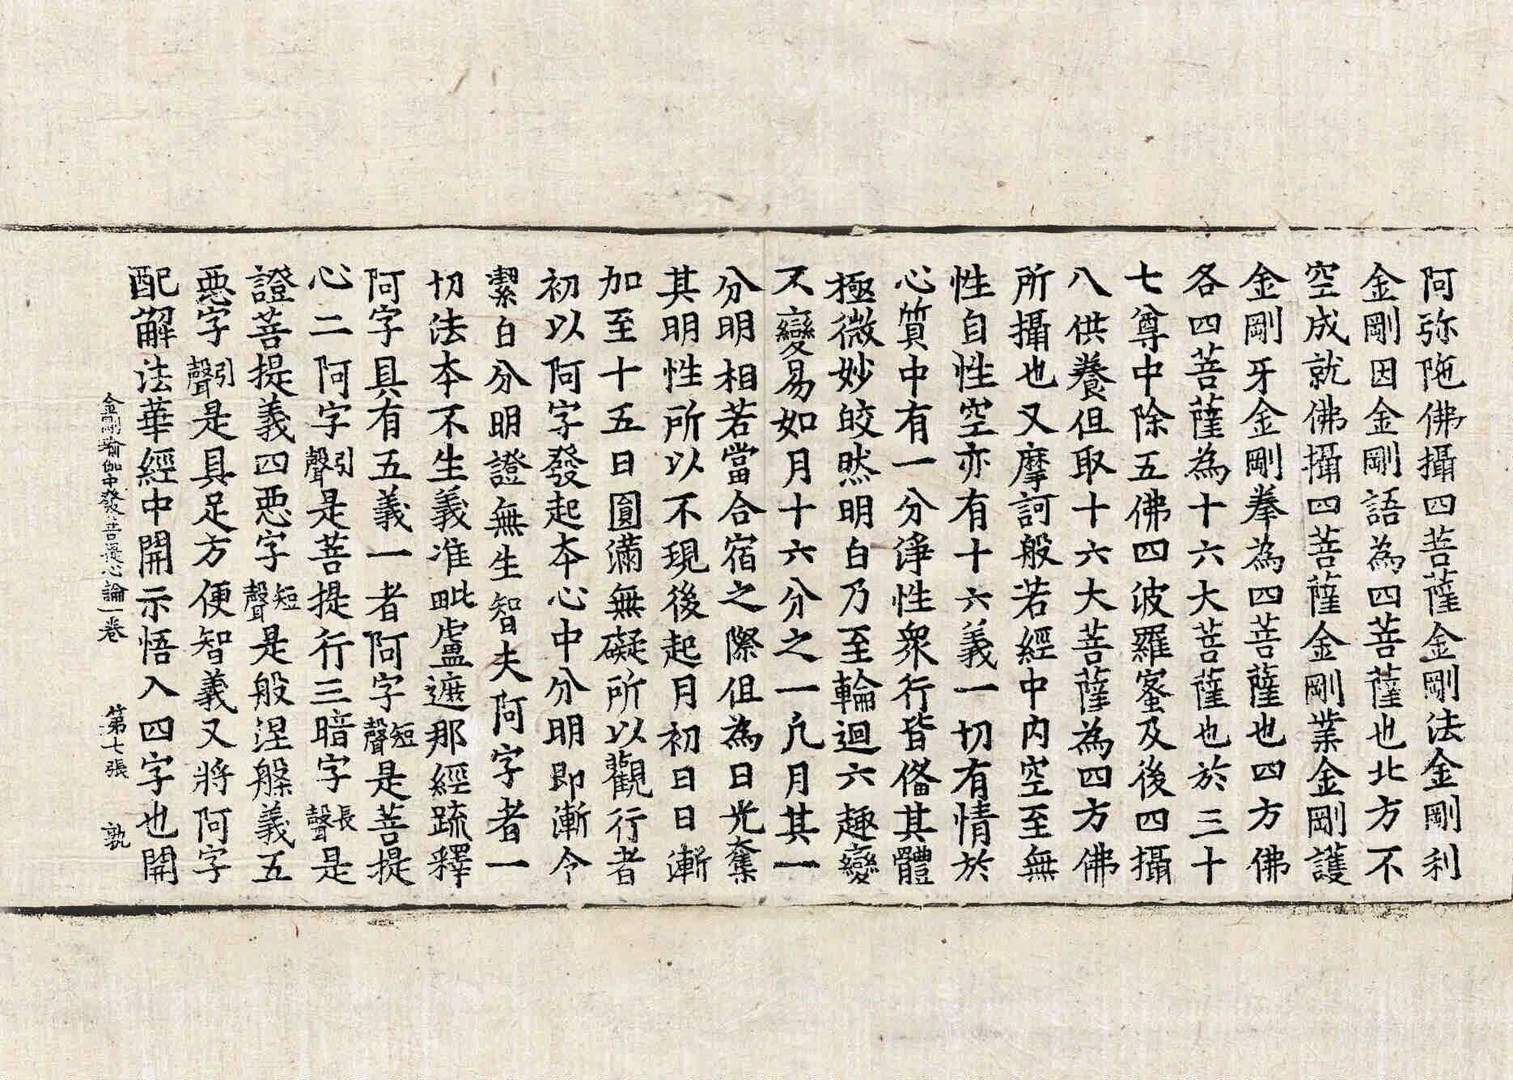 阿弥陁佛攝四菩薩金剛法金剛利
金剛因金剛語為四菩薩也北方不
空成就佛攝四菩薩金剛業金剛護
金剛牙金剛拳為四菩薩也四方佛
各四菩薩為十六大菩薩也於三十
七尊中除五佛四波羅蜜及後四攝
八供養但取十六大菩薩為四方佛
所攝也又摩訶般若經中内空至無
性自性空亦有十六義一切有情於
心質中有一分淨性衆行皆俻其體
極微妙皎然明白乃至輪迴六趣變
不變易如月十六分之一凢月其一
分明相若當合宿之際但為日光奪
其明性所以不現後起月初日日漸
加至十五日圓滿無礙所以觀行者
初以阿字發起本心中分明即漸令
潔白分明證無生智夫阿字者一
切法本不生義准毗盧遮那經疏釋
阿字具有五義一者阿字短聲是菩提
心二阿字引聲是菩提行三暗字長聲是
證菩提義四惡字短聲是般涅槃義五
惡字引聲是具足方便智義又將阿字
配解法華經中開示悟入四字也開
金剛瑜伽中發菩提心論一卷 第七張 孰